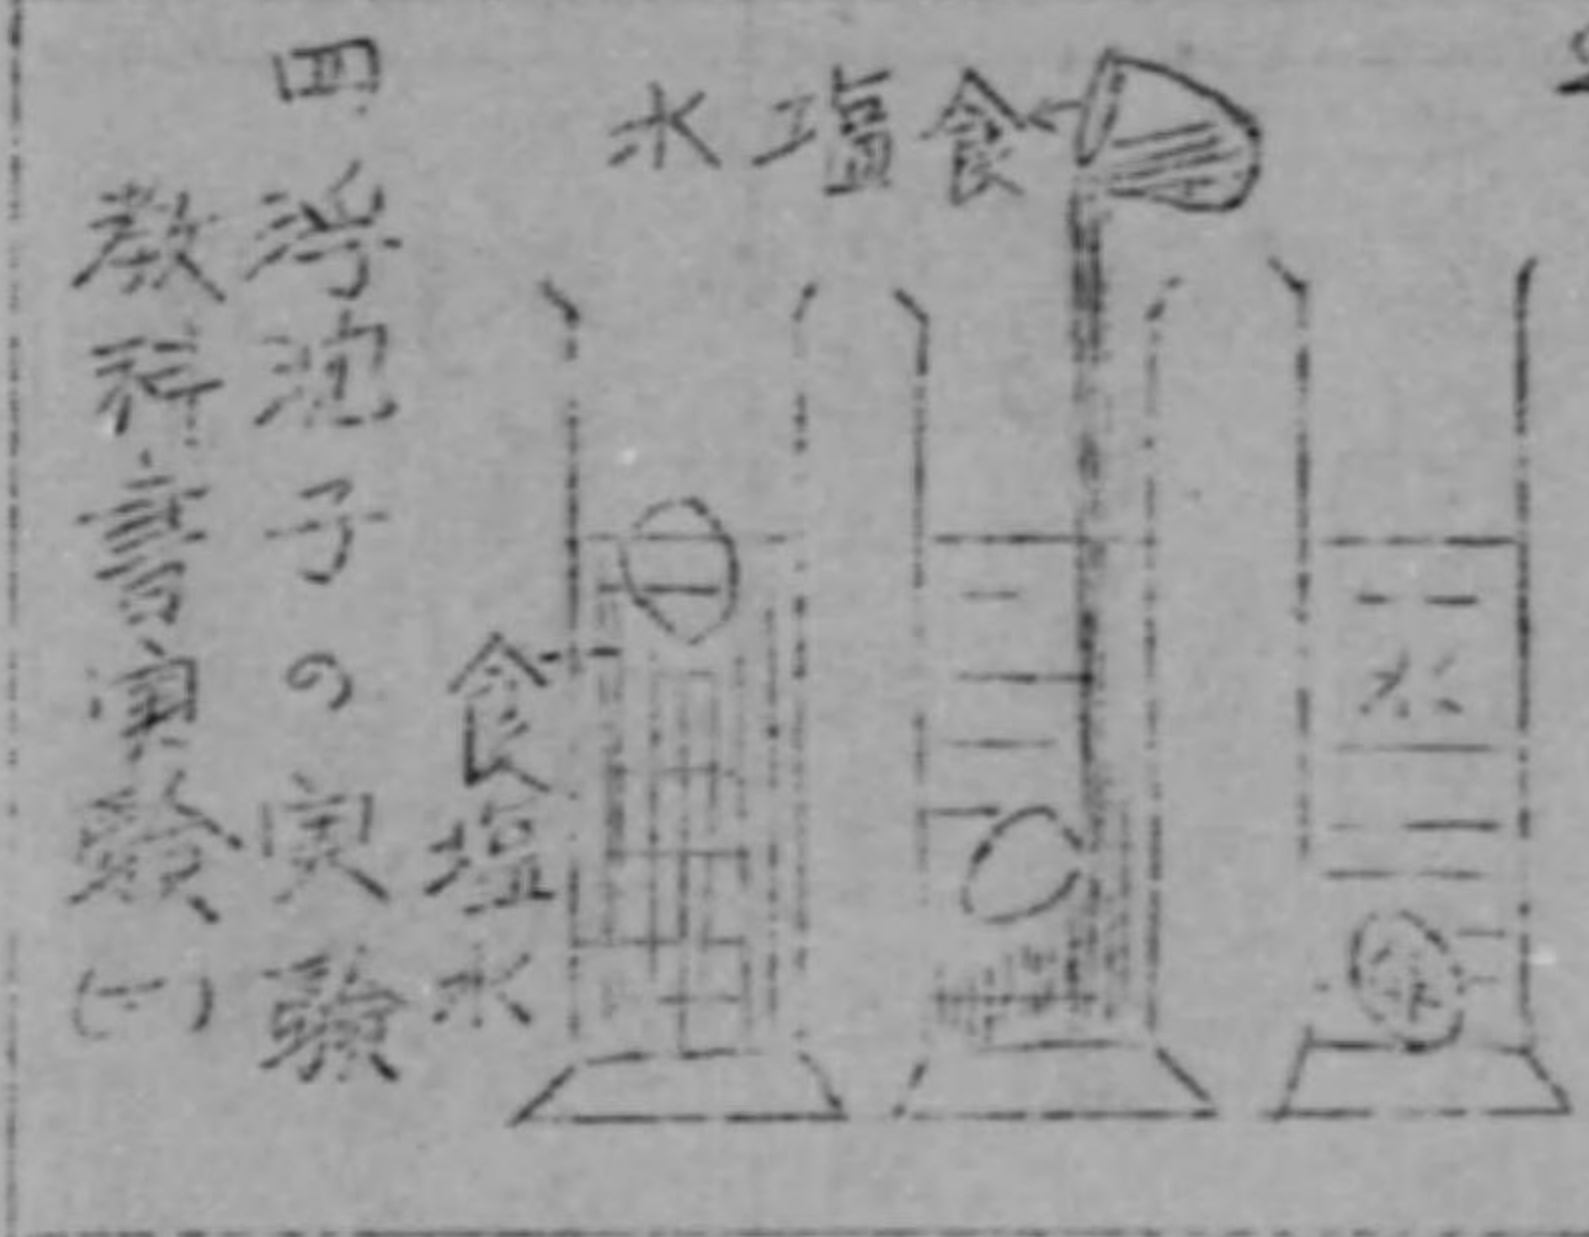 水
食塩水
食塩水
四 浮沈子の実験
教科書実験(一)